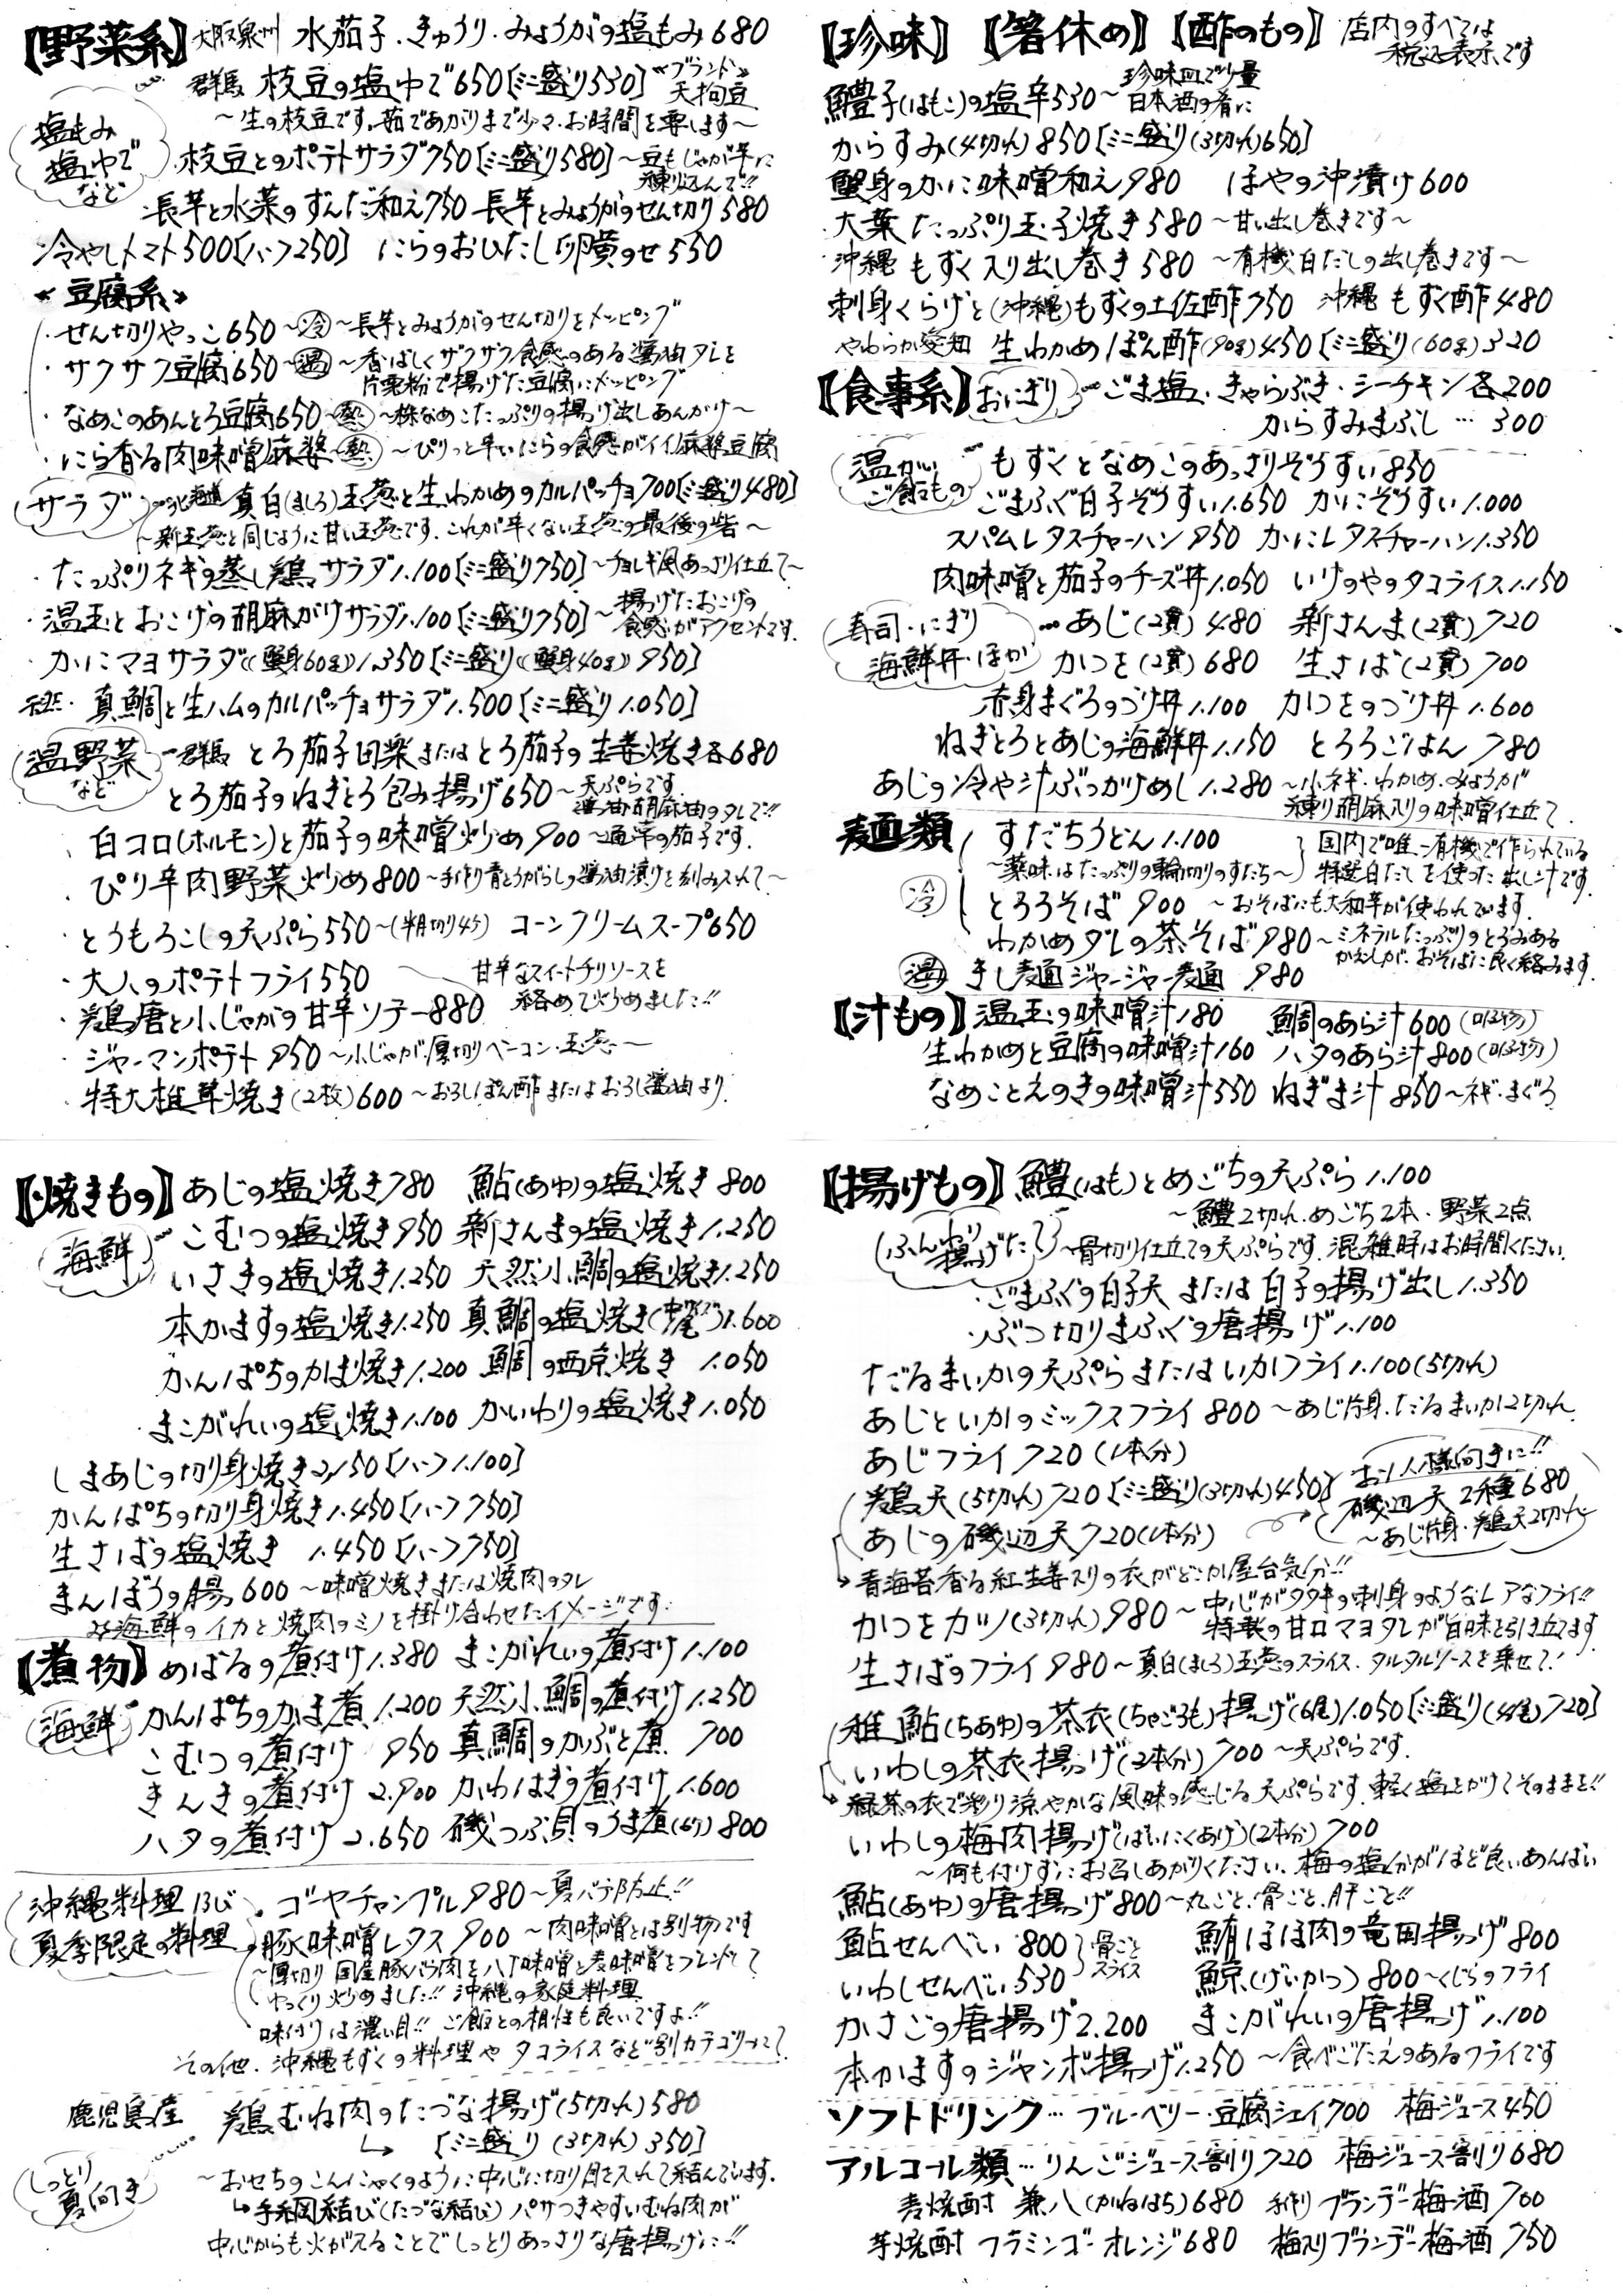 【野菜系】大阪泉州 水茄子・きゅうり・みょうがの塩もみ680
塩もみ 塩ゆで など
群馬 枝豆の塩ゆで650[ミニ盛り530] 《ブランド》天狗豆
～生の枝豆です。茹であがりまで少々、お時間を要します～
枝豆とのポテトサラダ750[ミニ盛り580]～豆もじゃが芋に練り込んで!!
長芋と水菜のずんだ和え750 長芋とみょうがのせん切り580
冷やしトマト500[ハーフ250] にらのおひたし卵黄のせ550
《豆腐系》
・せん切りやっこ650～冷～長芋とみょうがのせん切りをトッピング
・サクサク豆腐650～温～香ばしくザクザク食感のある醤油タレと
片栗粉で揚げた豆腐にトッピング
・なめこのあんとろ豆腐650～熱～株なめこたっぷりの揚げ出しあんかけ～
・にら香る肉味噌麻婆～熱～ぴりっと辛いにらの食感がイイ麻婆豆腐
サラダ…北海道 真白(ましろ)玉葱と生わかめのカルパッチョ700[ミニ盛り480]
～新玉葱と同じように甘い玉葱です。これが辛くない玉葱の最後の砦～
・たっぷりネギの蒸し鶏サラダ1.100[ミニ盛り750]～チョレギ風あっさり仕立て～
・温玉とおこげの胡麻がけサラダ1.100[ミニ盛り750]～揚げたおこげの食感がアクセントです。
・かにマヨサラダ《蟹身60g》1.350[ミニ盛り《蟹身40g》950]
・真鯛と生ハムのカルパッチョサラダ1.500[ミニ盛り1.050]
温野菜 など
群馬 とろ茄子田楽またはとろ茄子の生姜焼き各680
とろ茄子のねぎとろ包み揚げ650～天ぷらです。醤油胡麻油のタレで!!
・白コロ(ホルモン)と茄子の味噌炒め900～通常の茄子です。
・ぴり辛肉野菜炒め800～手作り青とうがらしの醤油漬けを刻み入れて～
・とうもろこしの天ぷら550～(半月切り4ケ) コーンクリームスープ650
・大人のポテトフライ550
・鶏唐と小じゃがの甘辛ソテー880 甘辛なスイートチリソースを絡めて炒めました!!
・ジャーマンポテト950～小じゃが・厚切りベーコン・玉葱～
・特大椎茸焼き(2枚)600～おろしぽん酢またはおろし醤油より
【珍味】【箸休め】【酢のもの】店内のすべては税込表示です
鱧子(はもこ)の塩辛530～珍味皿で少量 日本酒の肴に
からすみ(4切れ)850[ミニ盛り(3切れ)650]
蟹身のかに味噌和え980 ほやの沖漬け600
大葉たっぷり玉子焼き580～甘い出し巻きです～
沖縄もずく入り出し巻き580～有機白だしの出し巻きです～
刺身くらげと(沖縄)もずくの土佐酢750 沖縄もずく酢480
やわらか愛知 生わかめぽん酢(90g)450[ミニ盛り(60g)320
【食事系】おにぎり…ごま塩・きゃらぶき・シーチキン各200
からすみまぶし…300
温かいご飯もの
もずくとなめこのあっさりぞうすい850
ごまふぐ白子ぞうすい1.650 かにぞうすい1.000
スパムレタスチャーハン950 かにレタスチャーハン1.350
肉味噌と茄子のチーズ丼1.050 いけのやのタコライス1.150
寿司・にぎり 海鮮丼・ほか
…あじ(2貫)480 新さんま(2貫)720
かつを(2貫)680 生さば(2貫)700
赤身まぐろのづけ丼1.100 かつをのづけ丼1.600
ねぎとろとあじの海鮮丼1.150 とろろごはん780
あじの冷や汁ぶっかけめし1.280～小ネギ・わかめ・みょうが
練り胡麻入りの味噌仕立て。
麺類
冷
すだちうどん1.100
～薬味はたっぷりの輪切りのすだち～
国内で唯一有機で作られている特選白だしを使った出し汁です。
とろろそば900～おそばにも大和芋が使われています。
わかめダレの茶そば980～ミネラルたっぷりのとろみあるかえしが、おそばに良く絡みます。
温 きし麺ジャージャー麺980
【汁もの】温玉の味噌汁180 鯛のあら汁600(吸物)
生わかめと豆腐の味噌汁160 ハタのあら汁800(吸物)
なめことえのきの味噌汁550 ねぎま汁850～ネギ・まぐろ
【焼きもの】あじの塩焼き780 鮎(あゆ)の塩焼き800
海鮮
こむつの塩焼き950 新さんまの塩焼き1.250
いさきの塩焼き1.250 天然小鯛の塩焼き1.250
本かますの塩焼き1.250 真鯛の塩焼き(中サイズ)1.600
かんぱちのかま焼き1.200 鯛の西京焼き1.050
まこがれいの塩焼き1.100 かいわりの塩焼き1.050
しまあじの切り身焼き2.150[ハーフ1.100]
かんぱちの切り身焼き1.450[ハーフ750]
生さばの塩焼き1.450[ハーフ750]
まんぼうの腸600～味噌焼きまたは焼肉のタレ
※海鮮のイカと焼肉のミノを掛け合わせたイメージです。
【煮物】めばるの煮付け1.380 まこがれいの煮付け1.100
海鮮
かんぱちのかま煮1.200 天然小鯛の煮付け1.250
こむつの煮付け950 真鯛のかぶと煮700
きんきの煮付け2.900 かわはぎの煮付け1.600
ハタの煮付け2.650 磯つぶ貝のうま煮(6ケ)800
沖縄料理及び 夏季限定の料理
・ゴーヤチャンプル980～夏バテ防止!!
・豚味噌レタス900～肉味噌とは別物です
～厚切り国産豚バラ肉を八丁味噌と麦味噌をブレンドして
ゆっくり炒めました!! 沖縄の家庭料理
味付けは濃い目!! ご飯との相性も良いですよ!!
その他、沖縄もずくの料理やタコライスなど別カテゴリーにて。
鹿児島産 鶏むね肉のたづな揚げ(5切れ)580
[ミニ盛り(3切れ)350]
しっとり 夏向き
～おせちのこんにゃくのように中心に切り目を入れて結んでいます。
手綱結び(たづな結び) パサつきやすいむね肉が
中心からも火が入ることでしっとりあっさりな唐揚げに!!
【揚げもの】鱧(はも)とめごちの天ぷら1.100
～鱧2切れ・めごち2本・野菜2点
～骨切り仕立ての天ぷらです。混雑時はお時間ください。
・ごまふぐの白子天または白子の揚げ出し1.350
・ぶつ切りまふぐの唐揚げ1.100
だるまいかの天ぷらまたはいかフライ1.100(5切れ)
あじといかのミックスフライ800～あじ片身・だるまいか2切れ
あじフライ720(1本分)
鶏天(5切れ)720[ミニ盛り(3切れ)450]
あじの磯辺天720(1本分)
お1人様向きに!!
磯辺天2種680
～あじ片身・鶏天2切れ～
青海苔香る紅生姜入りの衣がどこか屋台気分!!
かつをカツ(3切れ)980～中心がタタキの刺身のようなレアなフライ!!
特製の甘口マヨダレが旨味を引き立てます
生さばのフライ980～真白(ましろ)玉葱のスライス、タルタルソースを乗せて!
稚鮎(ちあゆ)の茶衣(ちゃごろも)揚げ(6尾)1.050[ミニ盛り(4尾)720]
いわしの茶衣揚げ(2本分)700～天ぷらです。
緑茶の衣で彩り涼やかな風味の感じる天ぷらです。軽く塩をかけてそのままを!!
いわしの梅肉揚げ(ばいにくあげ)(2本分)700
～何も付けずにお召しあがりください。梅の塩分がほど良いあんばい
鮎(あゆ)の唐揚げ800～丸ごと、骨ごと、肝ごと!!
鮎せんべい800 鮪ほほ肉の竜田揚げ800
いわしせんべい530 骨ごとスライス 鯨(げいかつ)800～くじらのフライ
かさごの唐揚げ2.200 まこがれいの唐揚げ1.100
本かますのジャンボ揚げ1.250～食べごたえのあるフライです
ソフトドリンク…ブルーベリー豆腐シェイク700 梅ジュース450
アルコール類…りんごジュース割り720 梅ジュース割り680
麦焼酎 兼八(かねはち)680 手作りブランデー梅酒700
芋焼酎 フラミンゴオレンジ680 梅入りブランデー梅酒750